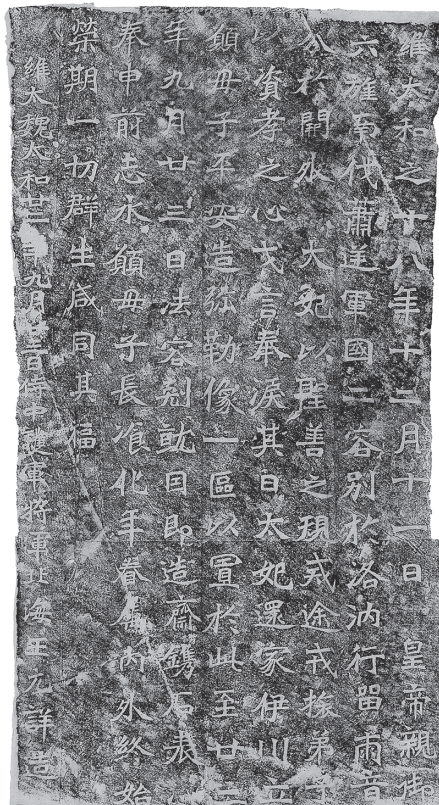 維太和之十八年十二月十一日皇帝親御
六旌南伐蕭逆軍國二容別於洛汭行留兩音
分於闕外太妃以聖善之規戒途戒旅弟子
以資孝之心戈言奉淚其日太妃還家伊川立
願母子平安造弥勒像一區以置於此至廿二
年九月廿三日法容剋就因即造齋鐫石表
奉申前志永願母子長飡化年眷屬內外終始
榮期一切群生咸同其福
維大魏太和廿二年九月廿三日侍中護軍將軍北海王元詳造